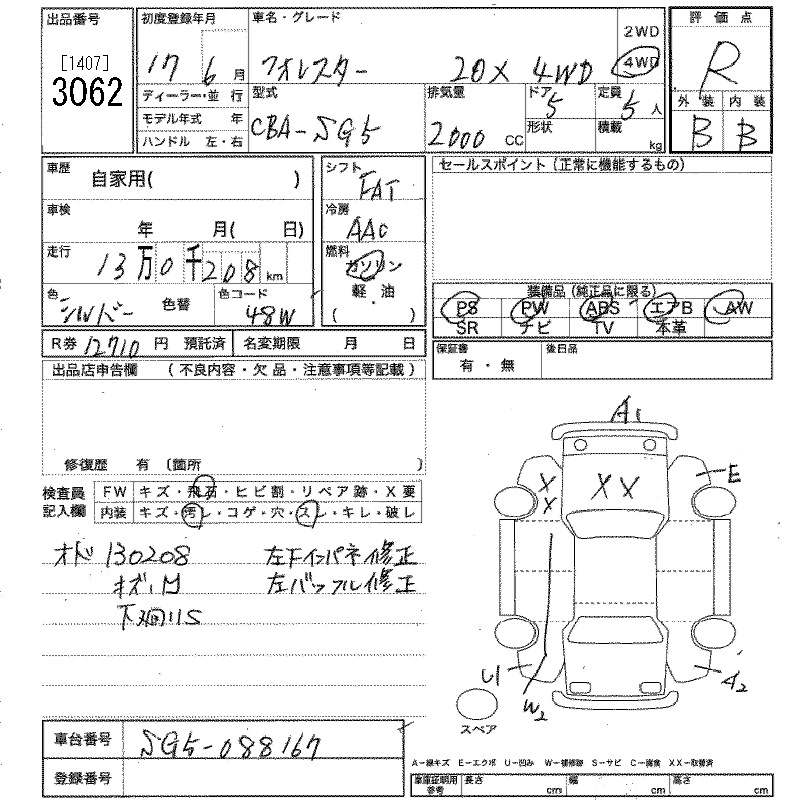 出品番号
[1407]
3062
初度登録年月
17 6 月
車名・グレード
フォレスター 20X 4WD
2WD
4WD
評価点
R
外装 内装
B B
ディーラー・並行
モデル年式 年
ハンドル 左・右
型式
CBA-SG5
排気量
2000 CC
ドア
5
形状
定員
5 人
積載
kg
車歴
自家用( )
車検
年 月( 日)
走行
13万0千208 km
色
シルバー
色替
色コード
48W
シフト
FAT
冷房
AAC
燃料
ガソリン
軽・油
( )
セールスポイント(正常に機能するもの)
装備品(純正品に限る)
PS PW ABS エアB AW
SR ナビ TV 本革
R券 12710 円 預託済
名変期限 月 日
保証書
有・無
後日品
出品店申告欄 (不良内容・欠品・注意事項等記載)
修復歴 有 〔箇所 〕
検査員
記入欄
FW キズ・飛石・ヒビ割・リペア跡・X要
内装 キズ・汚レ・コゲ・穴・スレ・キレ・破レ
オド 130208
キズ・凹
下廻りS
左Fインパネ修正
左バッフル修正
A1
E
X
X
XX
U1
W2
A2
スペア
車台番号 SG5-088167
登録番号
A-線キズ E-エクボ U-凹み W-補修跡 S-サビ C-腐食 XX-取替済
車庫証明用
参考
長さ cm
幅 cm
高さ cm